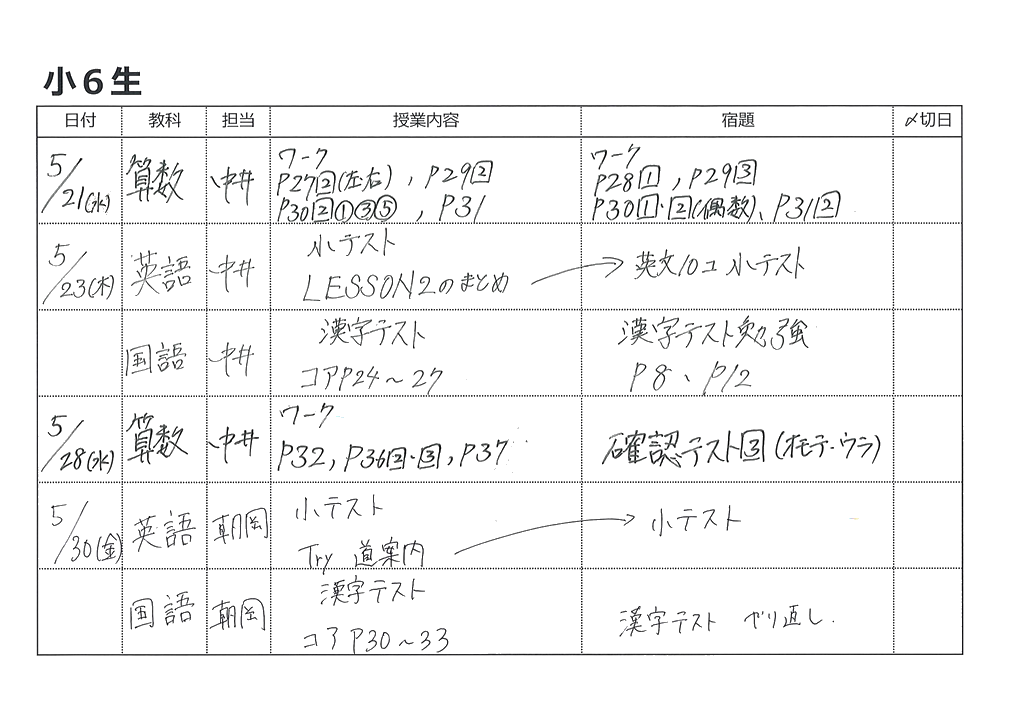 小６生
日付 教科 担当 授業内容 宿題 〆切日
5/21(水) 算数 中井
ワーク
P27②(左右), P29②
P30②①③⑤, P31
ワーク
P28①, P29③
P30①・②(偶数)、P31②
5/23(木) 英語 中井
小テスト
LESSON2のまとめ
英文/ロユ 小テスト
国語 中井
漢字テスト
コアP24～27
漢字テスト勉強
P8、P12
5/28(水) 算数 中井
ワーク
P32, P36②・③, P37
確認テスト③(オモテ・ウラ)
5/30(金) 英語 朝岡
小テスト
Try 道案内
小テスト
国語 朝岡
漢字テスト
コアP30～33
漢字テスト やり直し.